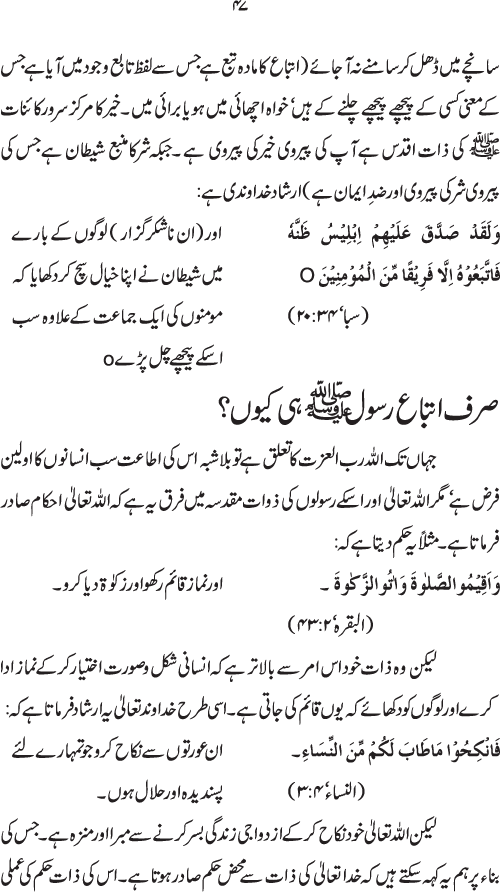 ۴۷
سانچے میں ڈھل کر سامنے نہ آ جائے (اتباع کا مادہ تبع ہے جس سے لفظ تابع وجود میں آیا ہے جس
کے معنی کسی کے پیچھے پیچھے چلنے کے ہیں‘ خواہ اچھائی میں ہو یا برائی میں۔ خیر کا مرکز سرور کائنات
ﷺ کی ذات اقدس ہے آپ کی پیروی خیر کی پیروی ہے۔ جبکہ شر کا منبع شیطان ہے جس کی
پیروی شر کی پیروی اور ضدِ ایمان ہے) ارشاد خداوندی ہے:
وَلَقَدْ صَدَّقَ عَلَيْهِمْ اِبْلِيْسُ ظَنَّهٗ
فَاتَّبَعُوْهُ اِلَّا فَرِيْقًا مِّنَ الْمُؤْمِنِيْنَ O
(سبا‘ ۳۴:۲۰)
اور (ان ناشکر گزار) لوگوں کے بارے
میں شیطان نے اپنا خیال سچ کر دکھایا کہ
مومنوں کی ایک جماعت کے علاوہ سب
اسکے پیچھے چل پڑے o
صرف اتباع رسول ﷺ ہی کیوں؟
جہاں تک اللہ رب العزت کا تعلق ہے تو بلاشبہ اس کی اطاعت سب انسانوں کا اولین
فرض ہے‘ مگر اللہ تعالیٰ اور اسکے رسولوں کی ذوات مقدسہ میں فرق یہ ہے کہ اللہ تعالیٰ احکام صادر
فرماتا ہے۔ مثلاً یہ حکم دیتا ہے کہ:
وَاَقِيْمُو الصَّلٰوةَ وَاٰتُو الزَّكٰوةَ ۔
(البقرہ‘ ۲:۴۳)
اور نماز قائم رکھو اور زکوٰۃ دیا کرو۔
لیکن وہ ذات خود اس امر سے بالاتر ہے کہ انسانی شکل و صورت اختیار کر کے نماز ادا
کرے اور لوگوں کو دکھائے کہ یوں قائم کی جاتی ہے۔ اسی طرح خداوند تعالیٰ یہ ارشاد فرماتا ہے کہ:
فَانْكِحُوْا مَاطَابَ لَكُمْ مِّنَ النِّسَاءِ۔
(النساء‘ ۴:۳)
ان عورتوں سے نکاح کرو جو تمہارے لئے
پسندیدہ اور حلال ہوں۔
لیکن اللہ تعالیٰ خود نکاح کر کے ازدواجی زندگی بسر کرنے سے مبرا اور منزہ ہے۔ جس کی
بناء پر ہم یہ کہہ سکتے ہیں کہ خدا تعالیٰ کی ذات سے محض حکم صادر ہوتا ہے۔ اس کی ذات حکم کی عملی